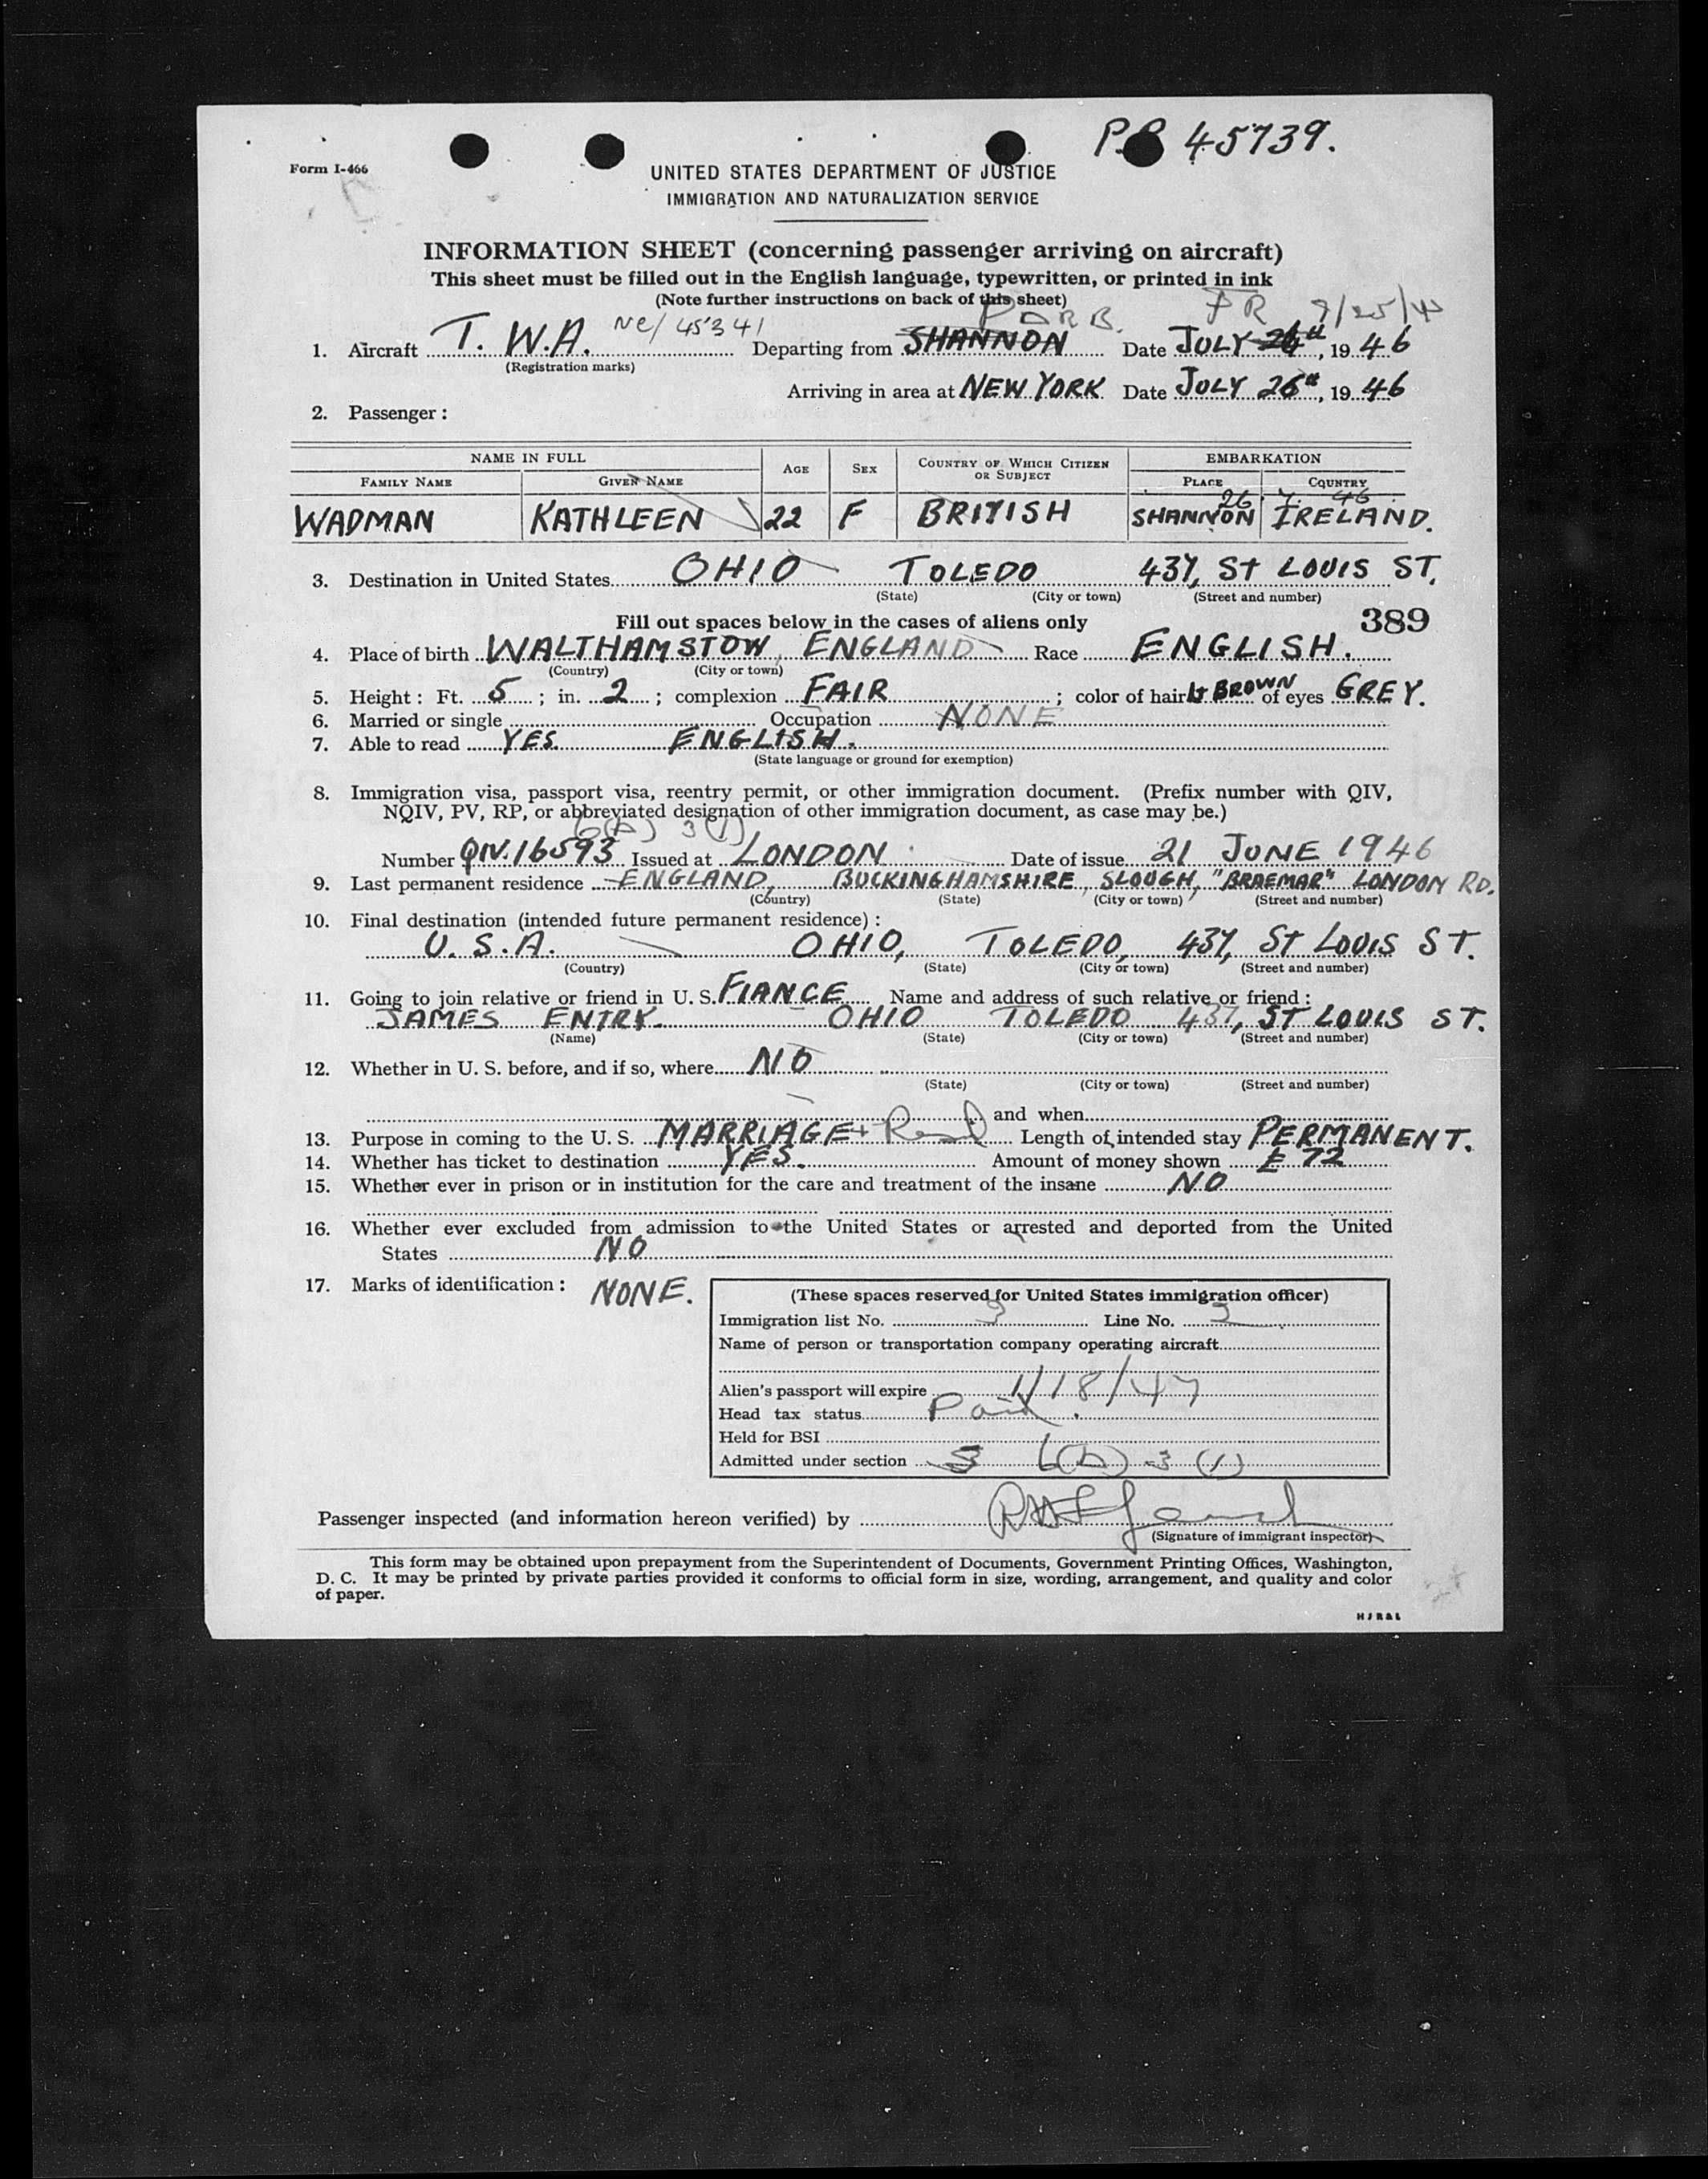 P.P 45739.
Form I-466
UNITED STATES DEPARTMENT OF JUSTICE
IMMIGRATION AND NATURALIZATION SERVICE
INFORMATION SHEET (concerning passenger arriving on aircraft)
This sheet must be filled out in the English language, typewritten, or printed in ink
(Note further instructions on back of this sheet)
1. Aircraft T. W.A. NC/45341 Departing from SHANNON Date JULY 26th, 19 46
(Registration marks)
Arriving in area at NEW YORK Date JULY 26th, 19 46
2. Passenger :
NAME IN FULL AGE SEX COUNTRY OF WHICH CITIZEN OR SUBJECT EMBARKATION
FAMILY NAME GIVEN NAME PLACE COUNTRY
26 7. 46
WADMAN KATHLEEN 22 F BRITISH SHANNON IRELAND.
3. Destination in United States OHIO TOLEDO 437, St LOUIS ST.
(State) (City or town) (Street and number)
Fill out spaces below in the cases of aliens only 389
4. Place of birth WALTHAMSTOW, ENGLAND Race ENGLISH.
(Country) (City or town)
5. Height : Ft. 5 ; in. 2 ; complexion FAIR ; color of hair Lt BROWN of eyes GREY.
6. Married or single Occupation NONE
7. Able to read YES. ENGLISH.
(State language or ground for exemption)
8. Immigration visa, passport visa, reentry permit, or other immigration document. (Prefix number with QIV,
NQIV, PV, RP, or abbreviated designation of other immigration document, as case may be.)
6(b) 3(1)
Number QIV.16593 Issued at LONDON Date of issue 21 JUNE 1946
9. Last permanent residence ENGLAND, BUCKINGHAMSHIRE, SLOUGH, "BRAEMAR" LONDON RD.
(Country) (State) (City or town) (Street and number)
10. Final destination (intended future permanent residence) :
U.S.A. OHIO, TOLEDO, 437, St LOUIS ST.
(Country) (State) (City or town) (Street and number)
11. Going to join relative or friend in U. S. FIANCE Name and address of such relative or friend :
JAMES ENTRY. OHIO TOLEDO 437, ST LOUIS ST.
(Name) (State) (City or town) (Street and number)
12. Whether in U. S. before, and if so, where NO
(State) (City or town) (Street and number)
and when
13. Purpose in coming to the U. S. MARRIAGE + Resd Length of intended stay PERMANENT.
14. Whether has ticket to destination YES. Amount of money shown £ 72
15. Whether ever in prison or in institution for the care and treatment of the insane NO
16. Whether ever excluded from admission to the United States or arrested and deported from the United
States NO
17. Marks of identification : NONE.
(These spaces reserved for United States immigration officer)
Immigration list No. 3 Line No. 2
Name of person or transportation company operating aircraft
Alien's passport will expire 1/18/47
Head tax status Paid.
Held for BSI
Admitted under section 6(b) 3 (1)
Passenger inspected (and information hereon verified) by
(Signature of immigrant inspector)
This form may be obtained upon prepayment from the Superintendent of Documents, Government Printing Offices, Washington,
D. C. It may be printed by private parties provided it conforms to official form in size, wording, arrangement, and quality and color
of paper.
HJR&L